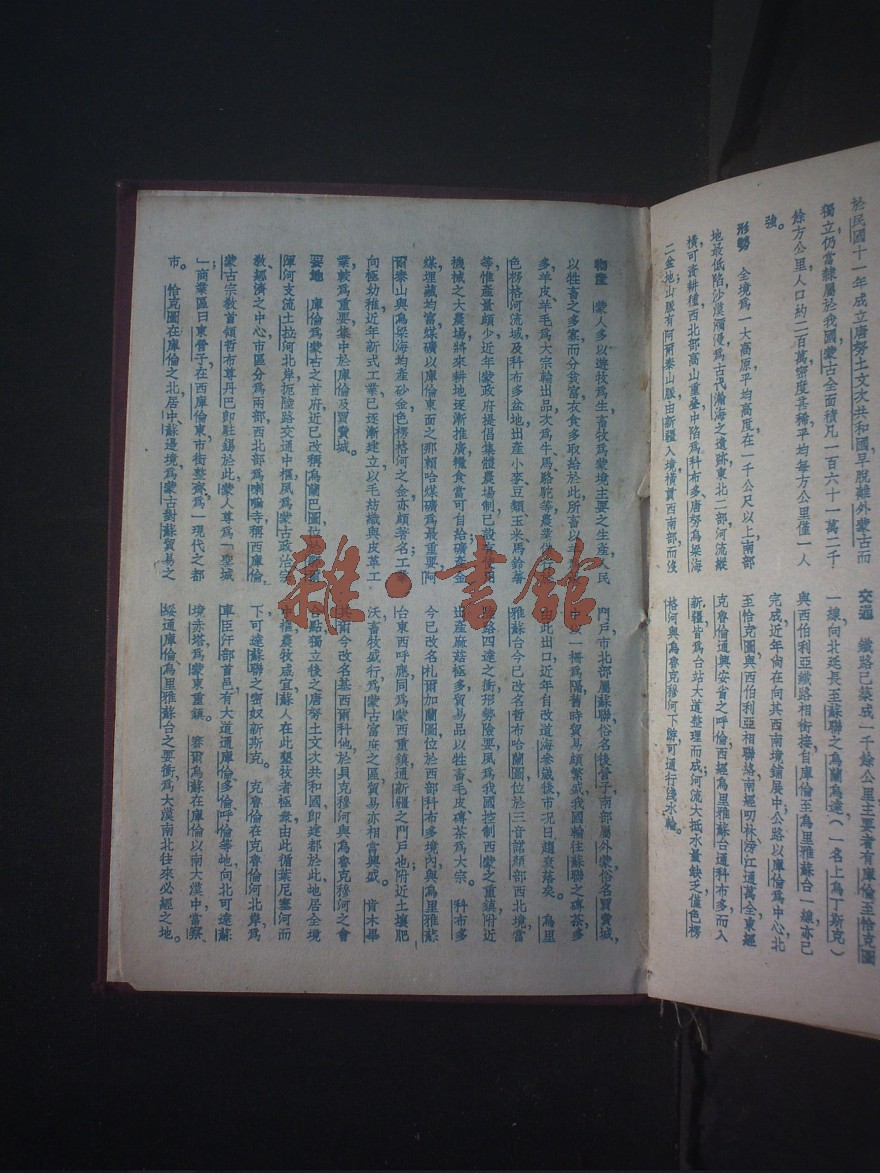 於民國十一年成立唐努土文次共和國早脫離外蒙古而
獨立仍當隸屬於我國蒙古全面積凡一百六十一萬二千
餘方公里人口約二百萬密度甚稀平均每方公里僅一人
強。
形勢　全境爲一大高原平均高度在一千公尺以上南部
地最低陷沙漠瀰漫爲古代瀚海之遺跡東北二部河流縱
橫可資耕種西北部高山重疊中陷爲科布多、唐努烏梁海
二盆地山脈有阿爾泰山脈由新疆入境橫貫西南部而沒
交通　鐵路已築成一千餘公里主要者有庫倫至恰克圖
一線向北延長至蘇聯之烏蘭烏達(一名上烏丁斯克)
與西伯利亞鐵路相銜接自庫倫至烏里雅蘇台一線亦已
完成近年尙在向其西南境鋪展中公路以庫倫爲中心北
至恰克圖與西伯利亞相聯絡南經叨林滂江通萬全東經
克魯倫通興安省之呼倫西經烏里雅蘇台通科布多而入
新疆皆爲台站大道整理而成河流大抵水量缺乏僅色楞
格河與烏魯克穆河下游可通行淺水輪。
物產　蒙人多以遊牧爲生畜牧爲蒙境主要之生產人民
以牲畜之多寡而分貧富衣食多取給於此所畜以羊
多羊皮羊毛爲大宗輸出品次爲牛馬駱駝等農業
等惟產量頗少近年蒙政府提倡集體農場制已設
色楞格河流域及科布多盆地出產小麥豆類玉米馬鈴薯
機械之大農場將來耕地逐漸推廣糧食當可自給礦
煤埋藏均富煤礦以庫倫東面之那賴哈煤礦爲最重要阿
爾泰山與烏梁海均產砂金色楞格河之金亦頗著名工業
向極幼稚近年新式工業已逐漸建立以毛紡織與皮革工
業較爲重要集中於庫倫及買賣城。
要地　庫倫爲蒙古之首府近已改稱烏蘭巴圖位於
渾河支流土拉河北岸扼陸路交通中樞夙爲蒙古政治宗
教經濟之中心市區分爲兩部西北部爲喇嘛寺稱西庫倫
蒙古宗敎首領哲布尊丹巴卽駐錫於此蒙人尊爲「聖城
」商業區曰東營子在西庫倫東市街整齊爲一現代之都
市。恰克圖在庫倫之北居中蘇邊境爲蒙古對蘇貿易之
門戶市北部屬蘇聯俗名後營子南部屬外蒙俗名買賣城,
一柵爲隔舊時貿易頗繁盛我國輸往蘇聯之磚茶多
由此出口近年自改道海參崴後市況日趨衰落矣。烏里
雅蘇台今已改名哲布哈蘭圖位於三音諾顏部西北境當
路四達之衝形勢險要夙爲我國控制西蒙之重鎭附近
出產蔴菇極多貿易品以牲畜毛皮磚茶爲大宗。科布多
今已改名札爾加蘭圖位於西部科布多境內與烏里雅蘇
台東西呼應同爲蒙西重鎭通新疆之門戶也附近土壤肥
沃畜牧盛行爲蒙古富庶之區貿易亦相當興盛。肯木畢
爾今改名基西爾科他於貝克穆河與烏魯克穆河之會
合點獨立後之唐努土文次共和國卽建都於此地居全境
中樞農牧咸宜蘇人在此墾牧者極衆由此循葉尼塞河而
下可達蘇聯之密奴新斯克。克魯倫在克魯倫河北岸爲
車臣汗部首邑有大道通庫倫多倫呼倫等地向北可達蘇
境赤塔爲蒙東重鎭。賽爾烏蘇在庫倫以南大漠中當察、
綏通庫倫、烏里雅蘇台之要衝爲大漠南北往來必經之地。
雜·書館